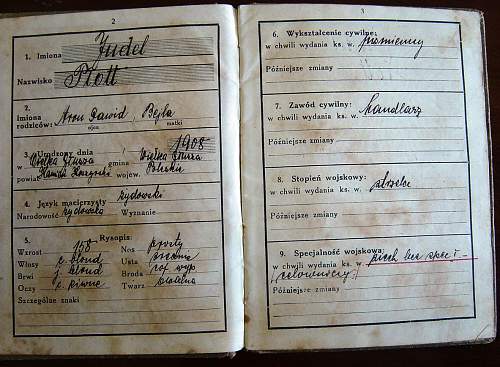 2
1. Imiona Judel
Nazwisko Płott
2.
Imiona
rodziców: Aron Dawid, Bejla
ojca matki
3. Urodzony dnia 1908
w Wielka gmina Wielka
powiat Kamień Koszyrski wojew. Poleskie
4. Język macierzysty żydowski
Narodowość żydowska Wyznanie
5. Rysopis:
Wzrost 158 Nos prosty
Włosy c. blond Usta średnie
Brwi j. blond Broda
Oczy c. piwne Twarz
Szczególne znaki
3
6. Wykształcenie cywilne:
w chwili wydania ks. w. piśmienny
Późniejsze zmiany
7. Zawód cywilny:
w chwili wydania ks. w. handlarz
Późniejsze zmiany
8. Stopień wojskowy:
w chwili wydania ks. w. strzelec
Późniejsze zmiany
9. Specjalność wojskowa:
w chwili wydania ks. w. piech bez specj-
(celowniczy)
Późniejsze zmiany